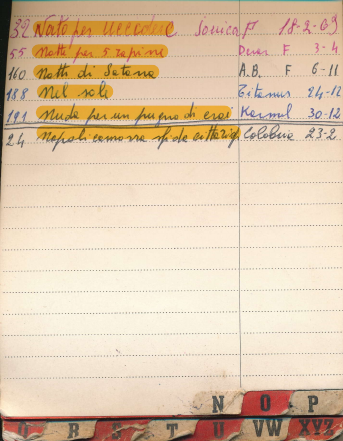 32 Nato per uccidere Sonica F 18-2-69
55 Notti per 5 rapine Dear F 3-4
160 Notti di Satana A.B. F 6-11
188 Nel sole Titanus 24-12
191 Nuda per un pugno di eroi 30-12
24 Napoli camorra sfida città 23-2
N O P
R S T U VW XYZ